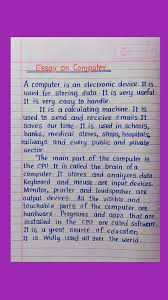 Essay on Computer
A computer is an electronic device. It is
used for storing data. It is very useful.
It is very easy to handle.
It is a calculating machine. It is
used to send and receive emails. It
saves our time. It is used in schools,
banks, medical stores, shops, hospitals,
railways and every public and private
sector.
The main part of the computer is
the CPU. It is called the brain of a
computer. It stores and analyzes data.
Keyboard and mouse are input devices.
Monitor, printer and loudspeaker are
output devices. All the visible and
touchable parts of the computer are
hardware. Programs and apps that are
installed in the CPU are called software.
It is a great source of education.
It is widely used all over the world.